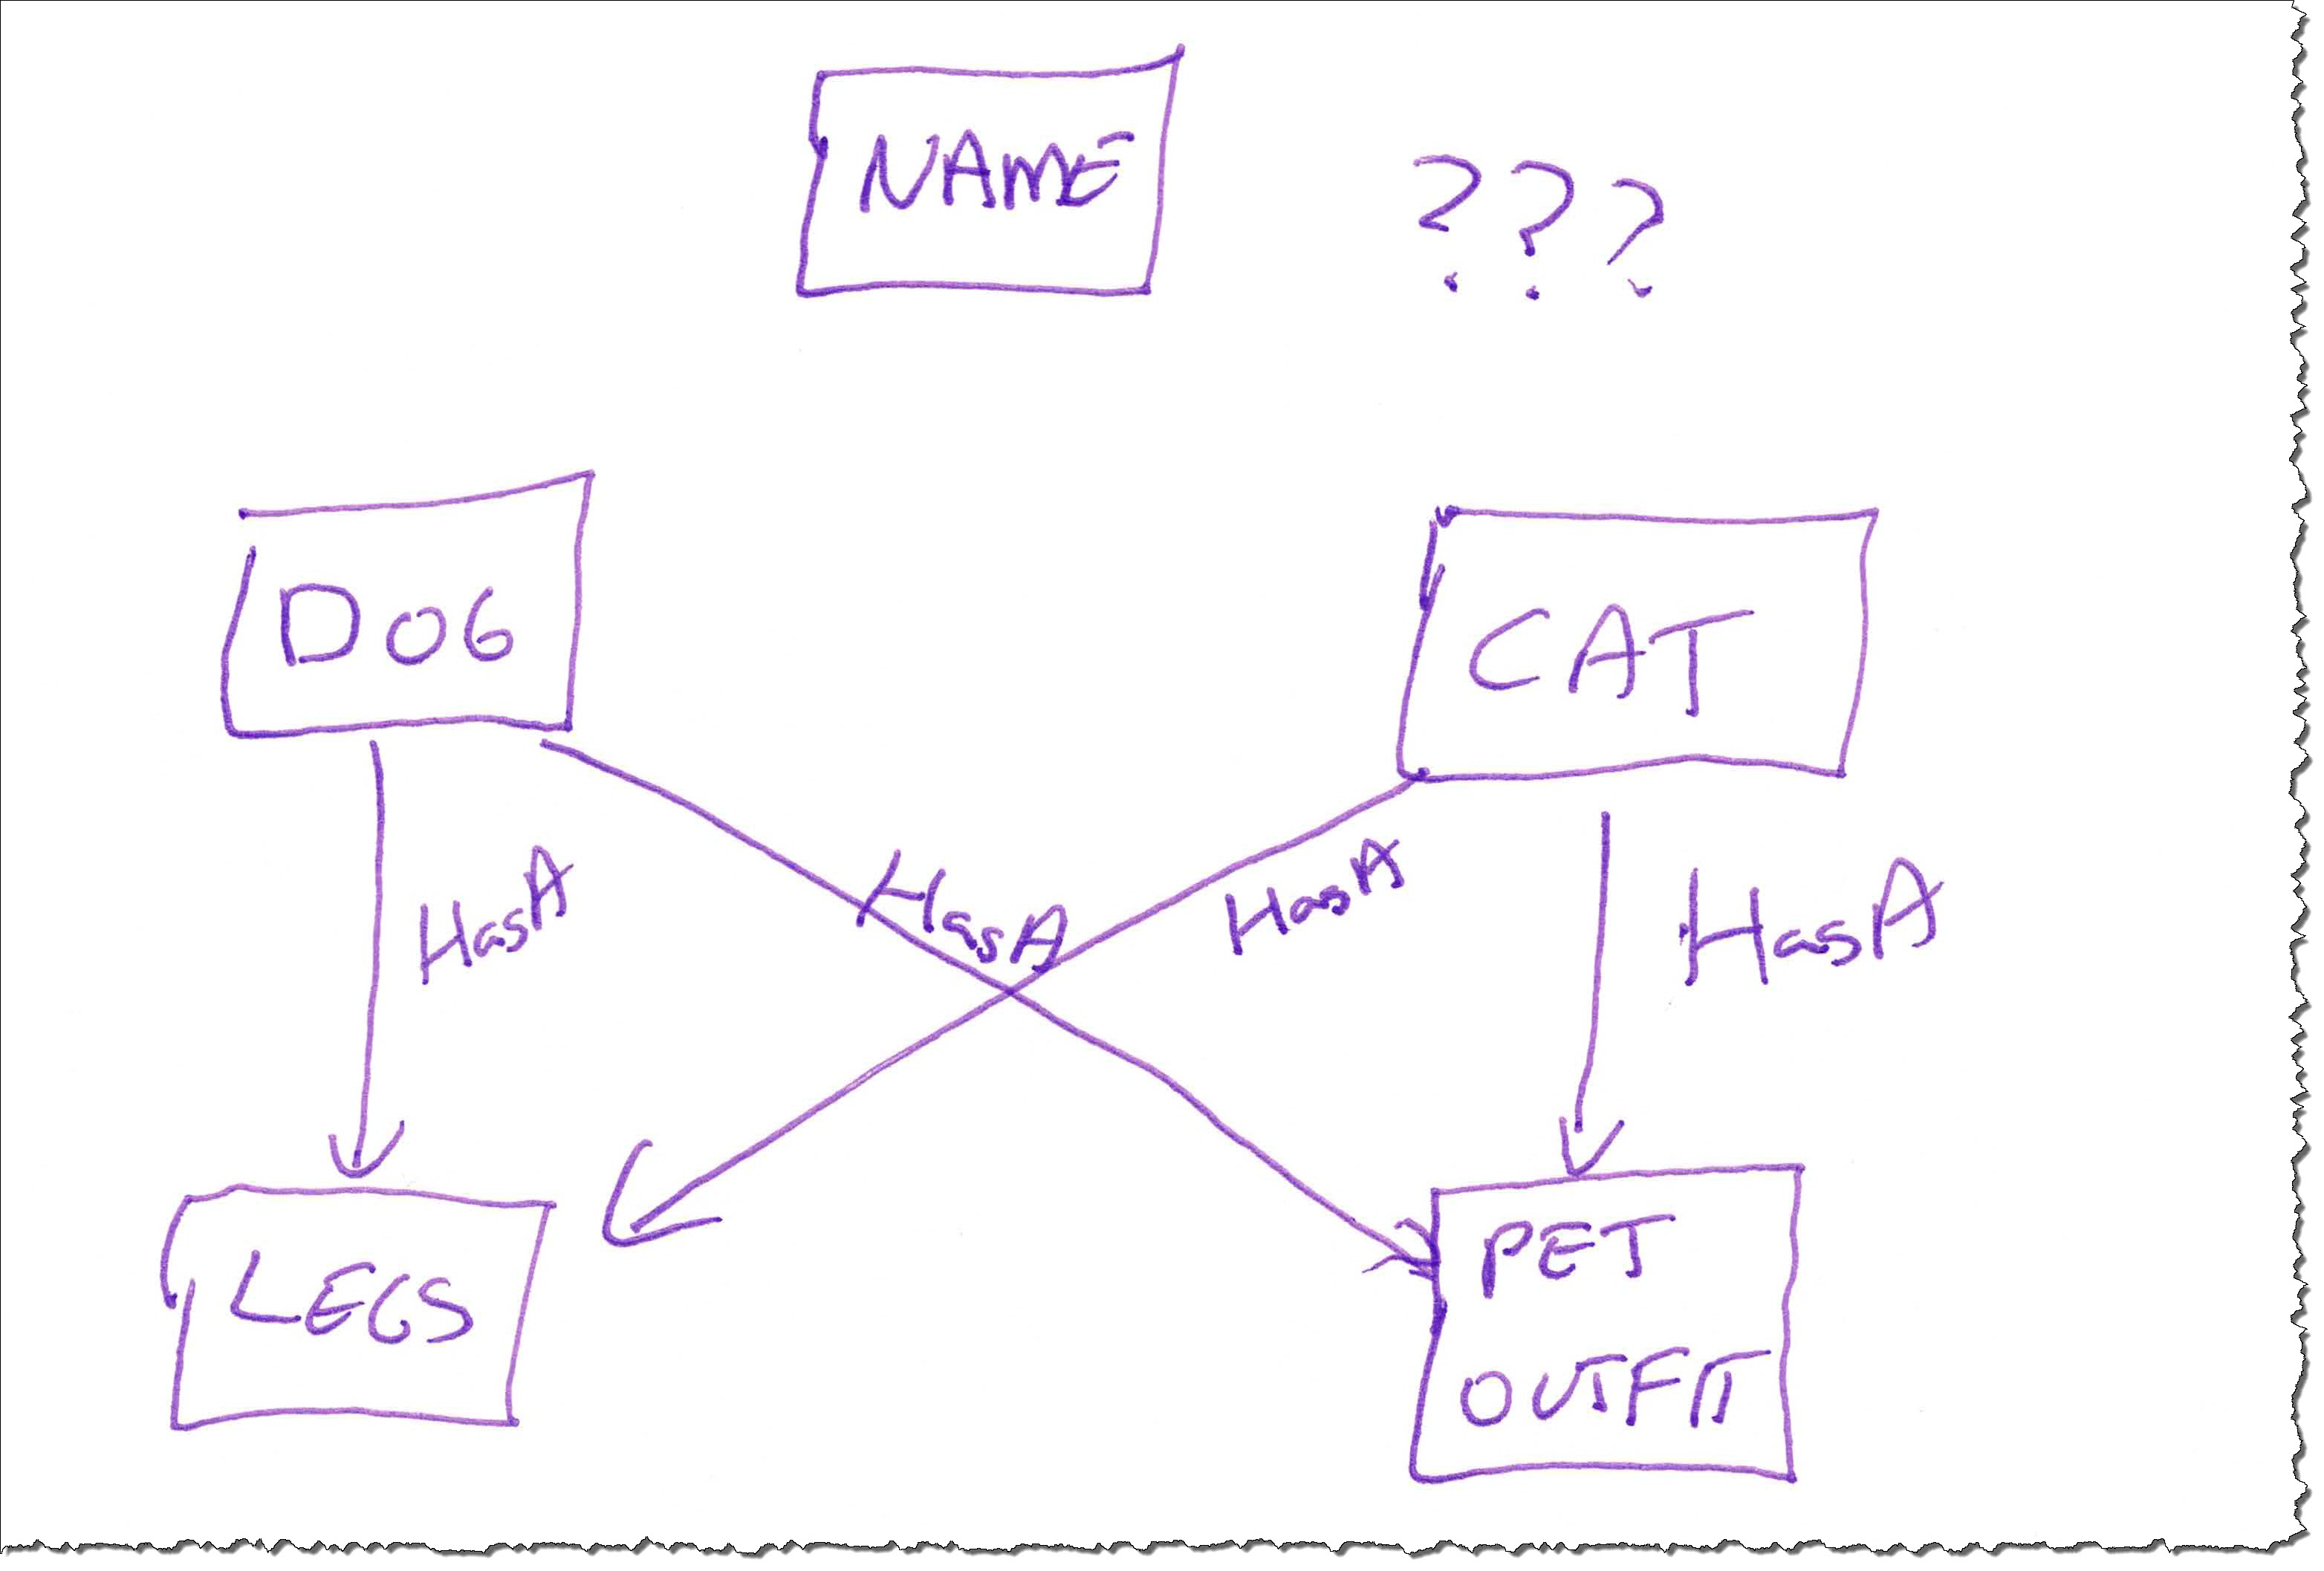 NAME
???
DOG
CAT
HasA
HasA
HasA
HasA
LEGS
PET
OUTFIT